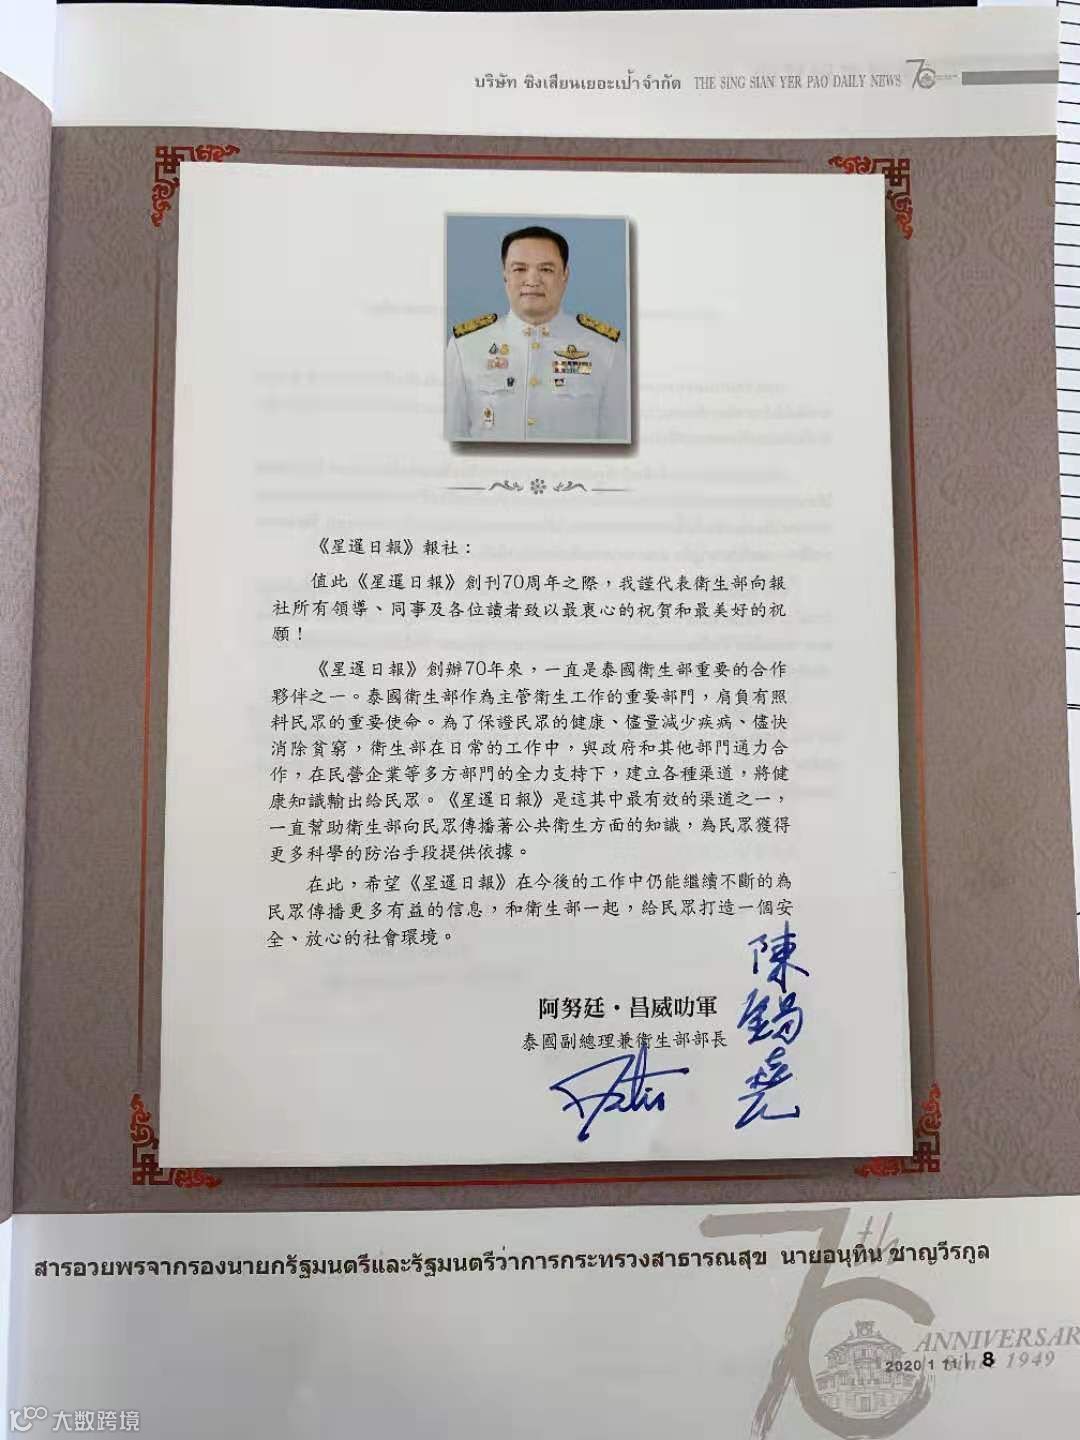 บริษัท ซิงเสียนเยอะเป้าจำกัด THE SING SIAN YER PAO DAILY NEWS 70
《星暹日報》報社：
值此《星暹日報》創刊70周年之際，我謹代表衛生部向報
社所有領導、同事及各位讀者致以最衷心的祝賀和最美好的祝
願！
《星暹日報》創辦70年來，一直是泰國衛生部重要的合作
夥伴之一。泰國衛生部作為主管衛生工作的重要部門，肩負有照
料民眾的重要使命。為了保證民眾的健康、儘量減少疾病、儘快
消除貧窮，衛生部在日常的工作中，與政府和其他部門通力合
作，在民營企業等多方部門的全力支持下，建立各種渠道，將健
康知識輸出給民眾。《星暹日報》是這其中最有效的渠道之一，
一直幫助衛生部向民眾傳播著公共衛生方面的知識，為民眾獲得
更多科學的防治手段提供依據。
在此，希望《星暹日報》在今後的工作中仍能繼續不斷的為
民眾傳播更多有益的信息，和衛生部一起，給民眾打造一個安
全、放心的社會環境。
阿努廷·昌威叻軍
泰國副總理兼衛生部部長
陳錫堯
สารอวยพรจากรองนายกรัฐมนตรีและรัฐมนตรีว่าการกระทรวงสาธารณสุข นายอนุทิน ชาญวีรกูล
70th
ANNIVERSAR
Since 1949
2020 1 11 | 8
大数跨境